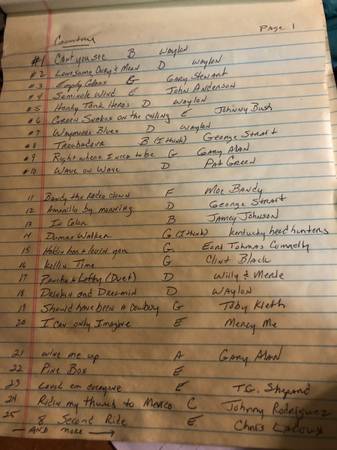 Page 1
Country
#1 Can't you see B Waylon
#2 Lonesome Onry & Mean D Waylon
#3 Empty Glass E Gary Stewart
#4 Seminole Wind E John Anderson
#5 Honky Tonk Heros D Waylon
#6 Green Snakes on the ceiling E Johnny Bush
#7 Waymores Blues D Waylon
#8 Troubadour B (I think) George Strait
#9 Right where I need to be G Gary Alan
#10 Wave on Wave D Pat Green
11 Bandy the Rodeo clown F Moe Bandy
12 Amarillo by morning D George Strait
13 In Color B Jamey Johnson
14 Dumas Walker G (I think) Kentucky head hunters
15 has a lovin you G Earl Thomas Connelly
16 Killin Time G Clint Black
17 Pancho & Lefty (Duet) D Willy & Merle
18 Drinkin and Dreamin D Waylon
19 Should have been a cowboy G Toby Kieth
20 I can only Imagine E Mercy Me
21 wine me up A Gary Alan
22 Pine Box E
23 Loved em everyone E T.G. Shepard
24 Ridin my thumb to Mexico C Johnny Rodriguez
25 8 Second Ride E Chris Ladoux
— AND more →